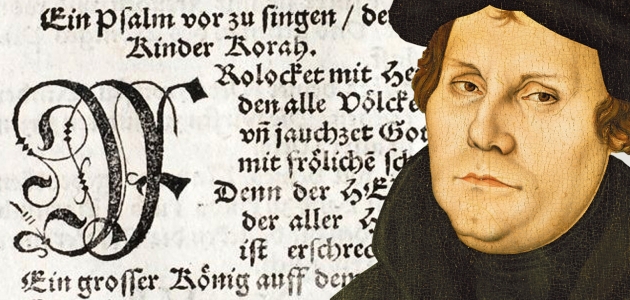 Ein Psalm vor zu singen / de
Kinder Korah.
FRolocket mit He
den alle Völcke
vñ jauchzet Go
mit frölichē sch
Denn der HE
der aller H
ist erschrec
Ein grosser König auff dem